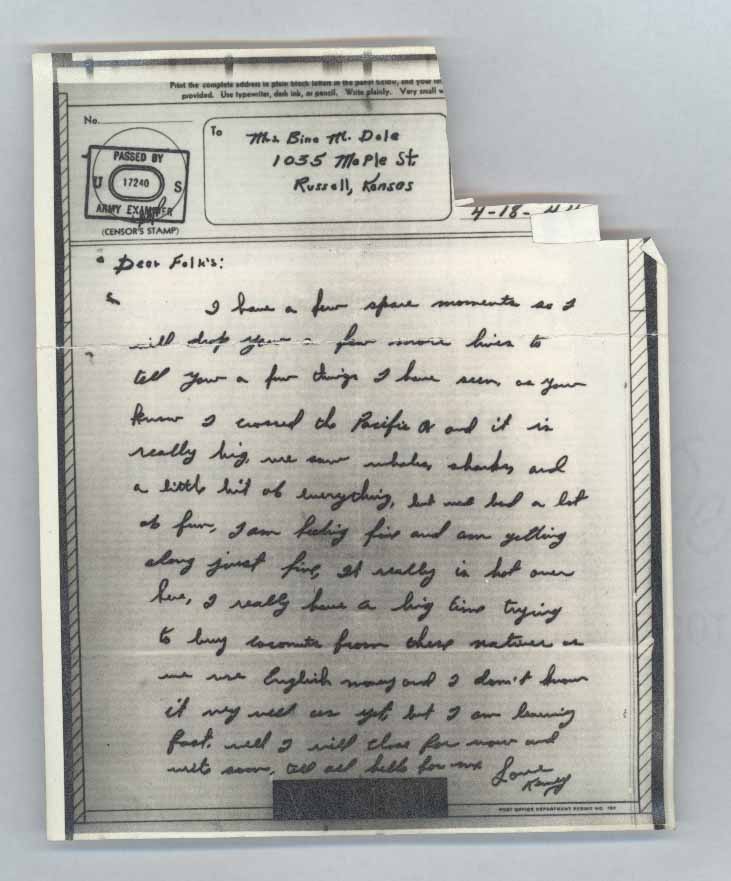 Print the complete address in plain block letters in the panel below, and your
provided. Use typewriter, dark ink, or pencil. Write plainly. Very small
No.
To
Mrs. Bina M. Dole
1035 Maple St.
Russell, Kansas
PASSED BY
U 17240 S
ARMY EXAMINER
(CENSOR'S STAMP)
4-18-44
Dear Folk's:
I have a few spare moments so I
will drop you a few more lines to
tell you a few things I have seen, as you
know I crossed the Pacific O and it is
really big, we saw whales, sharks, and
a little bit of everything, but we had a lot
of fun, I am feeling fine and am getting
along just fine, It really is hot over
here, I really have a big time trying
to buy coconuts from these natives as
we use English money and I don't know
it very well as yet but I am learning
fast. well I will close for now and
write soon, tell all hello for me Love
Kenny
POST OFFICE DEPARTMENT PERMIT NO.